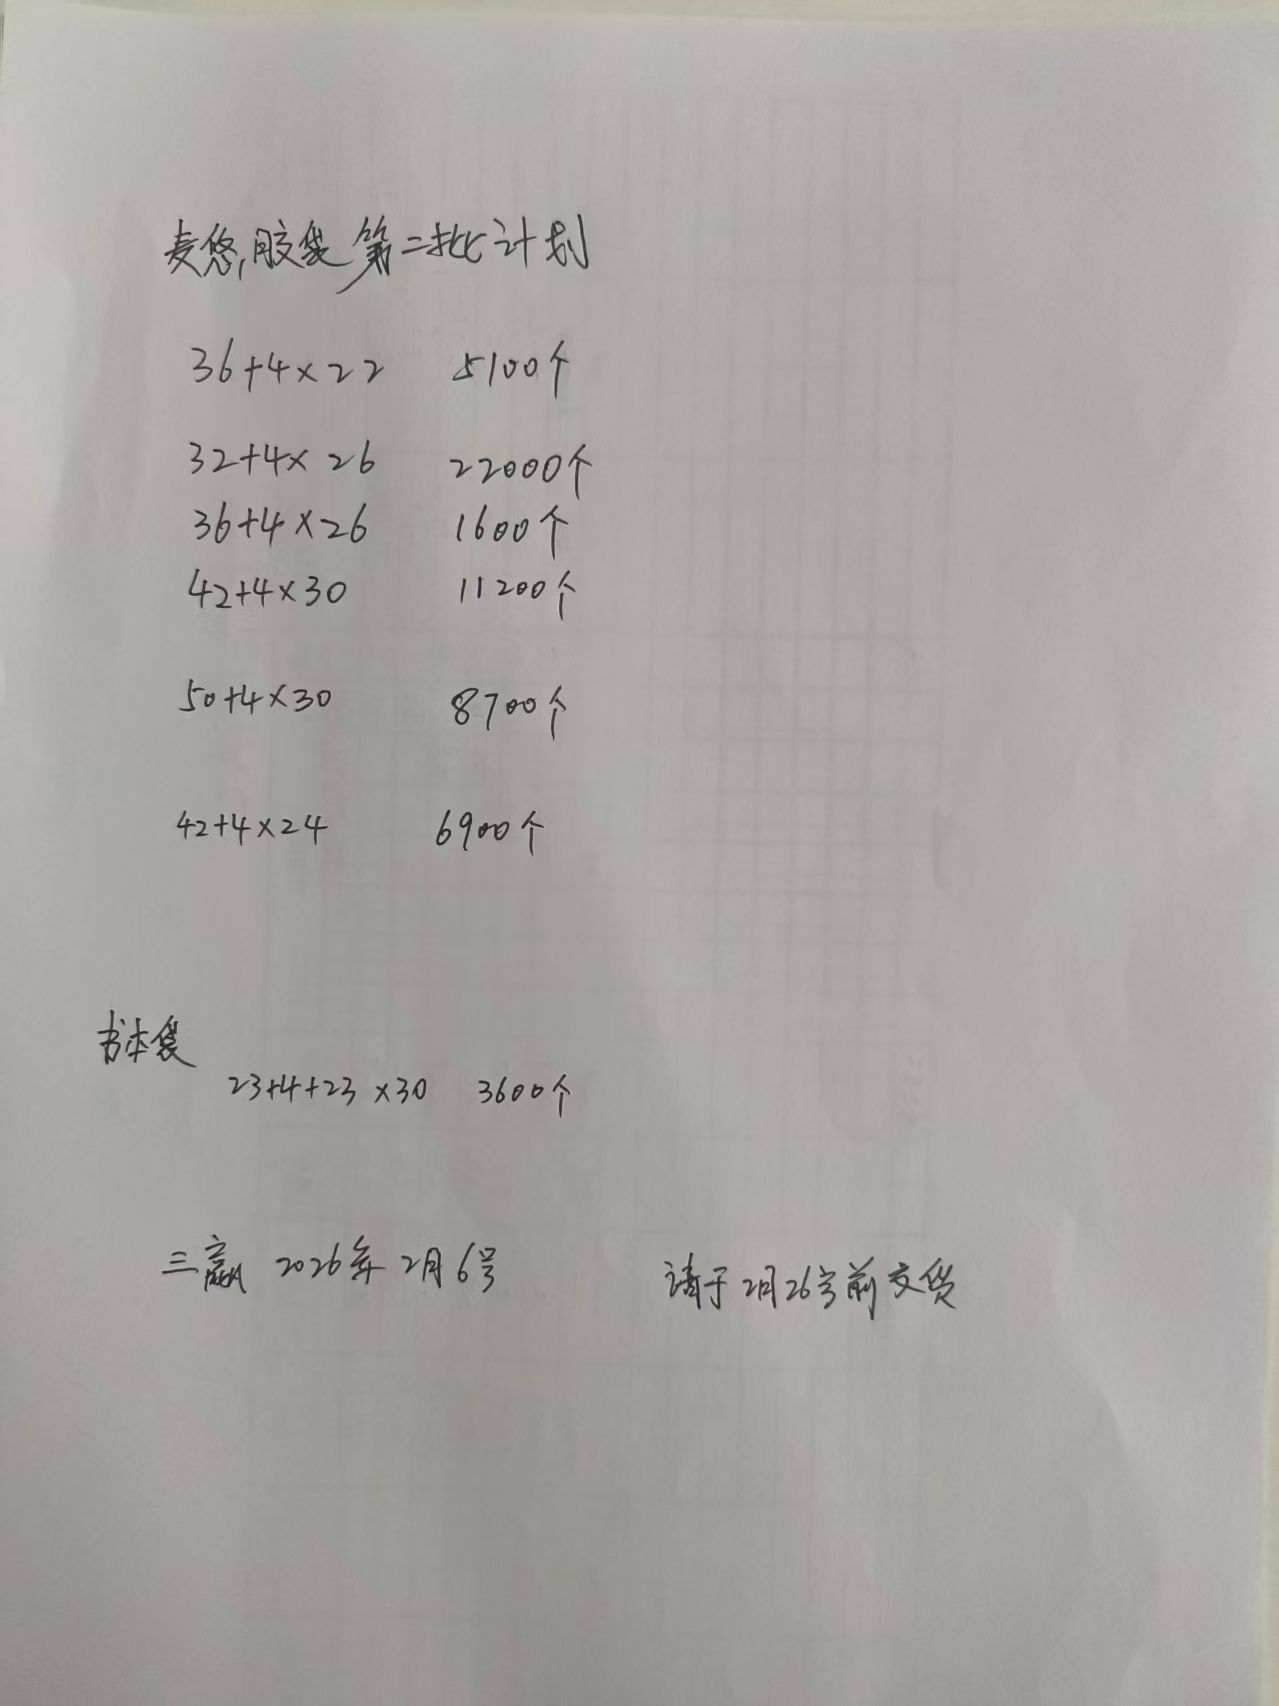 麦悠,胶袋第二批计划
36+4×22 5100个
32+4×26 22000个
36+4×26 1600个
42+4×30 11200个
50+4×30 8700个
42+4×24 6900个
书本袋
23+4+23×30 3600个
三赢 2026年2月6号 请于2月26号前交货